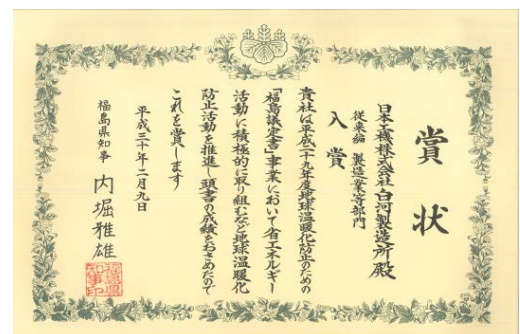 賞状
日本工機株式会社白河製造所殿
従来編 製造業等部門
入賞
貴社は平成二十九年度地球温暖化防止のための
「福島議定書」事業において省エネルギー
活動に積極的に取り組むなど地球温暖化
防止活動を推進し頭書の成績をおさめたので
これを賞します
平成三十年二月九日
福島県知事 内堀雅雄
福島県
知事印